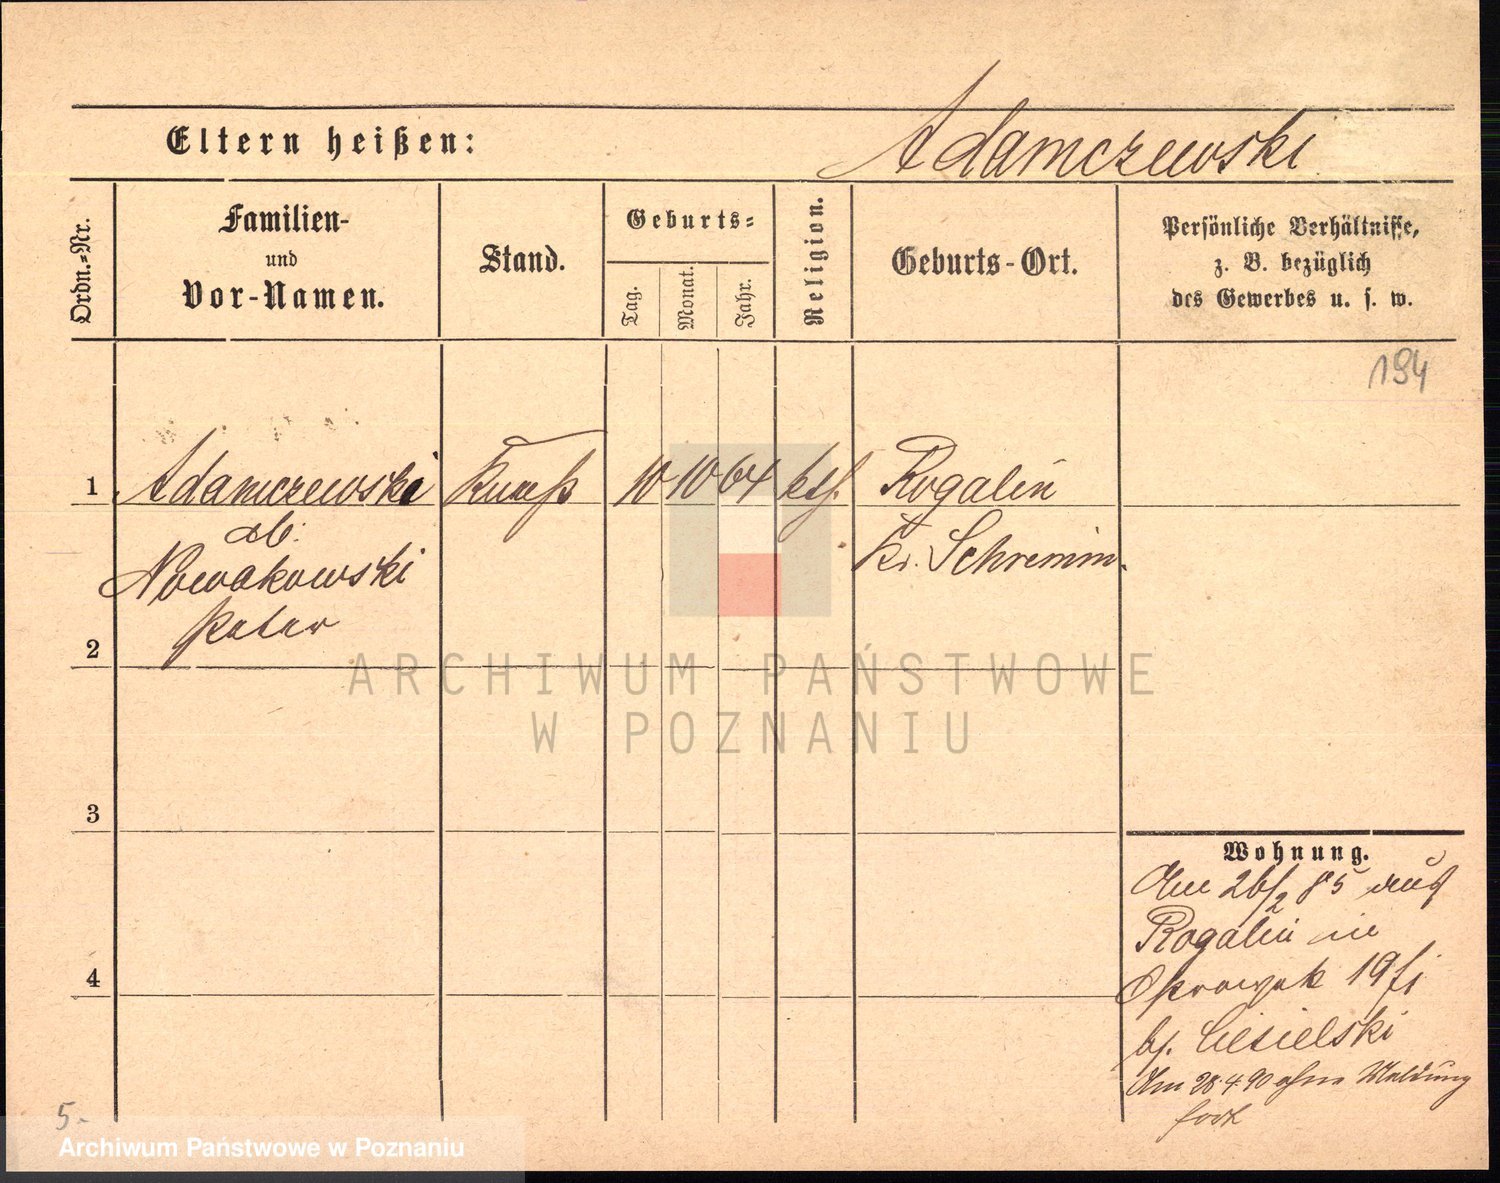 Adamczewski
Eltern heißen:
Ordn.=Nr.
Familien-
und
Vor-Namen.
Stand.
Geburts=
Tag.
Monat.
Jahr.
Religion.
Geburts-Ort.
Persönliche Verhältnisse,
z. B. bezüglich
des Gewerbes u. s. w.
194
1 Adamczewski 10 10 64 kth. Rogalin
Nowakowski
Kr. Schrimm.
Peter
2
3
4
Wohnung.
Am 26/2 85 aus
Rogalin in
19
b/. Ciesielski
Am 28.4.90 ohne Meldung
fort
5.-
ARCHIWUM PAŃSTWOWE
W POZNANIU
Archiwum Państwowe w Poznaniu